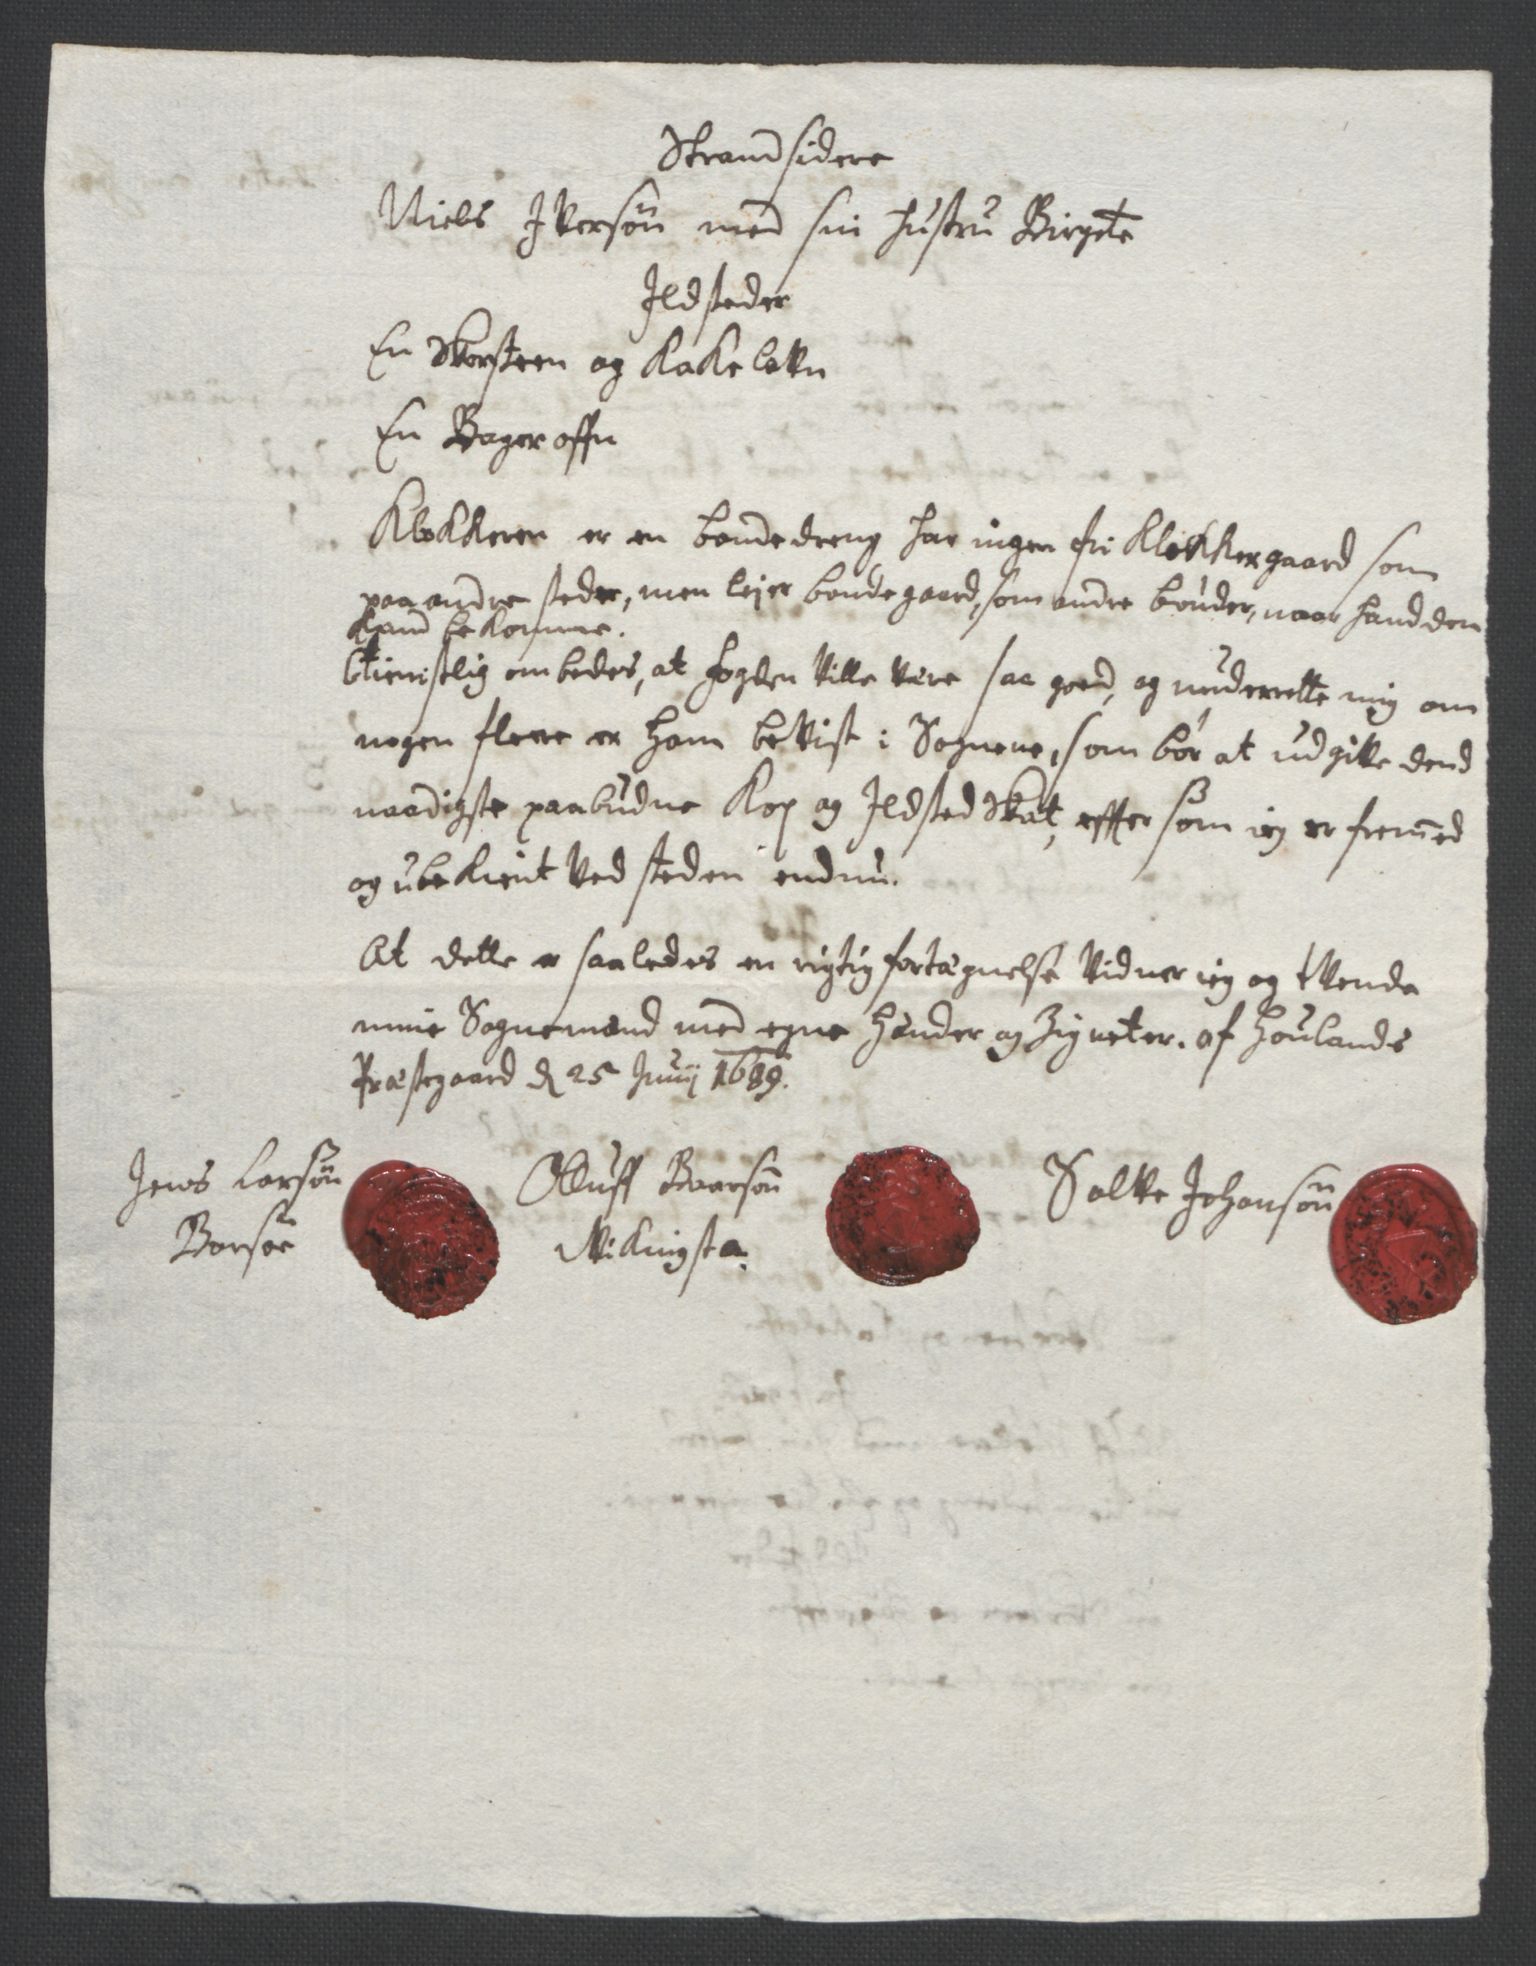 Strandsidere
Niels Iversøn med sin hustru Birgete
Ildsteder
En Skorsteen og Kakelovn
En Bageroffn
Klokkeren er en bondedreng har ingen fri Klokkergaard som
paa andre steder, men lejer bondegaard, som andre bønder, naar hand den
kand bekomme.
tienistlig ombedes, at fogden ville være saa goed, og underrette mig om
nogen fleere er ham bevist i Sognene, som bør at udgive dend
naadigste paabudne Kop og Ildsted Skat, effter som ieg er fremmed
og ubekient ved steden endnu.
At dette er saaledes en rigtig fortægnelse vidner ieg og tvende
mine Sognemænd med egne hænder og Zigneter. af Houlands
Præstegaard d 25 Junij 1689.
Jens Larsøn Oluff Baarsøn Salve Johansøn
Borsøe Vikingsta.